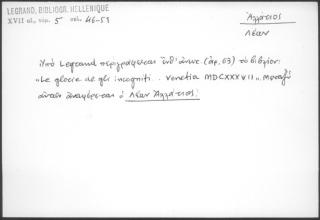 LEGRAND, BIBLIOGR. HELLENIQUE
XVII αἰ. τόμ. 5 σελ. 46-51
Ἀλλάτιος
Λέων
Ὑπό Legrand περιγράφεται ὑπ' ἀριθ. (ἀρ. 63) τὸ βιβλίον:
"Le glorie de gli incogniti . Venetia MDCXXXVII". Μεταξύ
ἄλλων ἀναφέρεται ὁ Λέων Ἀλλάτιος.